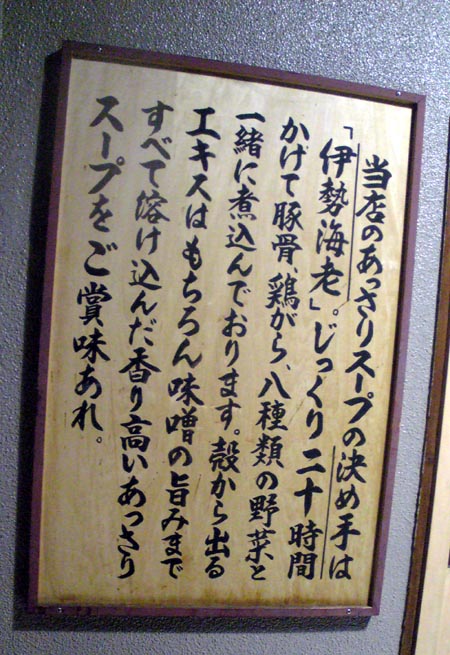 当店のあっさりスープの決め手は
「伊勢海老」。じっくり二十時間
かけて豚骨、鶏がら、八種類の野菜と
一緒に煮込んでおります。殻から出る
エキスはもちろん味噌の旨みまで
すべて溶け込んだ香り高いあっさり
スープをご賞味あれ。